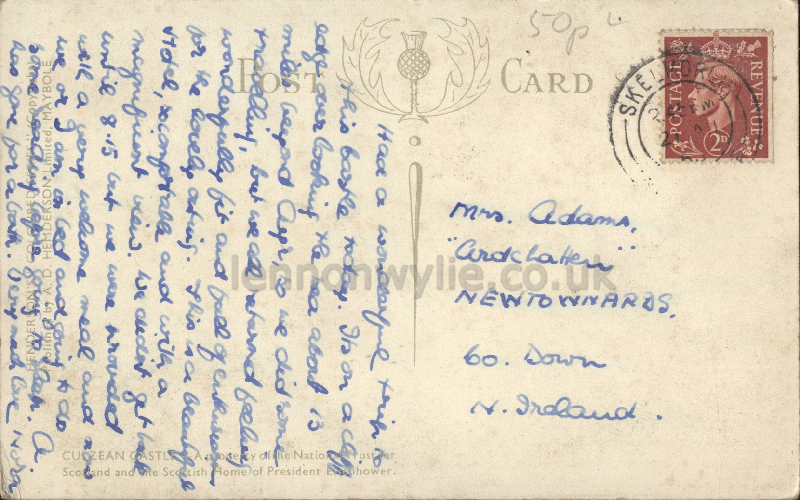 50p
POST CARD
SKELMORLIE
POSTAGE REVENUE
2D
Had a wonderful trip to
this castle today. Its on a cliff
edge overlooking the sea about 13
miles beyond Ayr, so we did some
travelling, but we all returned feeling
wonderfully fit and full of enthusiasm
for the lovely outing. This is a beautiful
Hotel, so comfortable and with a
magnificent view. We didn't get back
until 8.15 but we were provided
with a very welcome meal and now
we are in bed and going to do
some reading before going to sleep. A.
has gone for a bath. Very much love Nora
Mrs. Adams,
"Ardchatten"
NEWTOWNARDS,
Co. Down
N. Ireland.
lennonwylie.co.uk
Published by A. D. HENDERSON, Limited, MAYBOLE
CULZEAN CASTLE. A property of the National Trust for
Scotland and the Scottish Home of President Eisenhower.